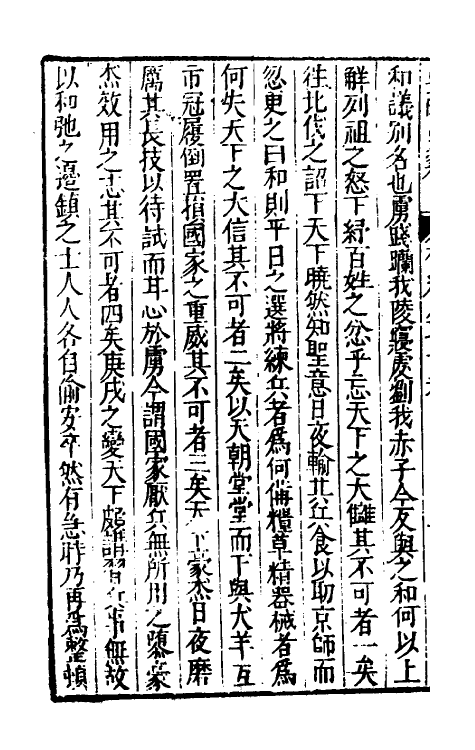 和議別名也虜踐躪我陵寢虔劉我赤子今反與之和何以上
觧列祖之怒下紓百姓之忿乎忘天下之大讎其不可者一矣
往北伐之詔下天下曉然知聖意日夜輸其兵食以助京師而
忽更之曰和則平日之選將練兵者爲何備糗草精器械者爲
何失天下之大信其不可者二矣以天朝堂堂而下與犬羊互
市冠履倒置損國家之重威其不可者三矣天下豪杰日夜磨
厲其長技以待試而甘心於虜今謂國家厭兵無所用之隳豪
杰效用之志其不可者四矣庚戌之變天下頗講習兵事無故
以和弛之邊鎮之士人人各自偷安卒然有急時乃再爲整頓